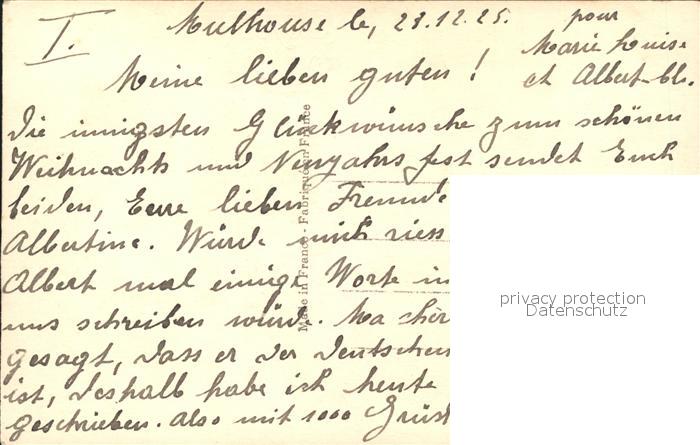 I. Mulhouse le, 23.12.25. pour
Marie Louise
Meine lieben guten! et Albert
Die innigsten Glückwünsche zum schönen
Weihnachts und Neujahrs fest sendet Euch
beiden, Eure lieben Freunde
Albertine. Würde mich riess
Albert mal einige Worte in
uns schreiben würde. Ma chér
gesagt, dass er der deutschen
ist, deshalb habe ich heute
geschrieben. Also mit 1000 Grüss
Made in France - Fabriqué en France
privacy protection
Datenschutz